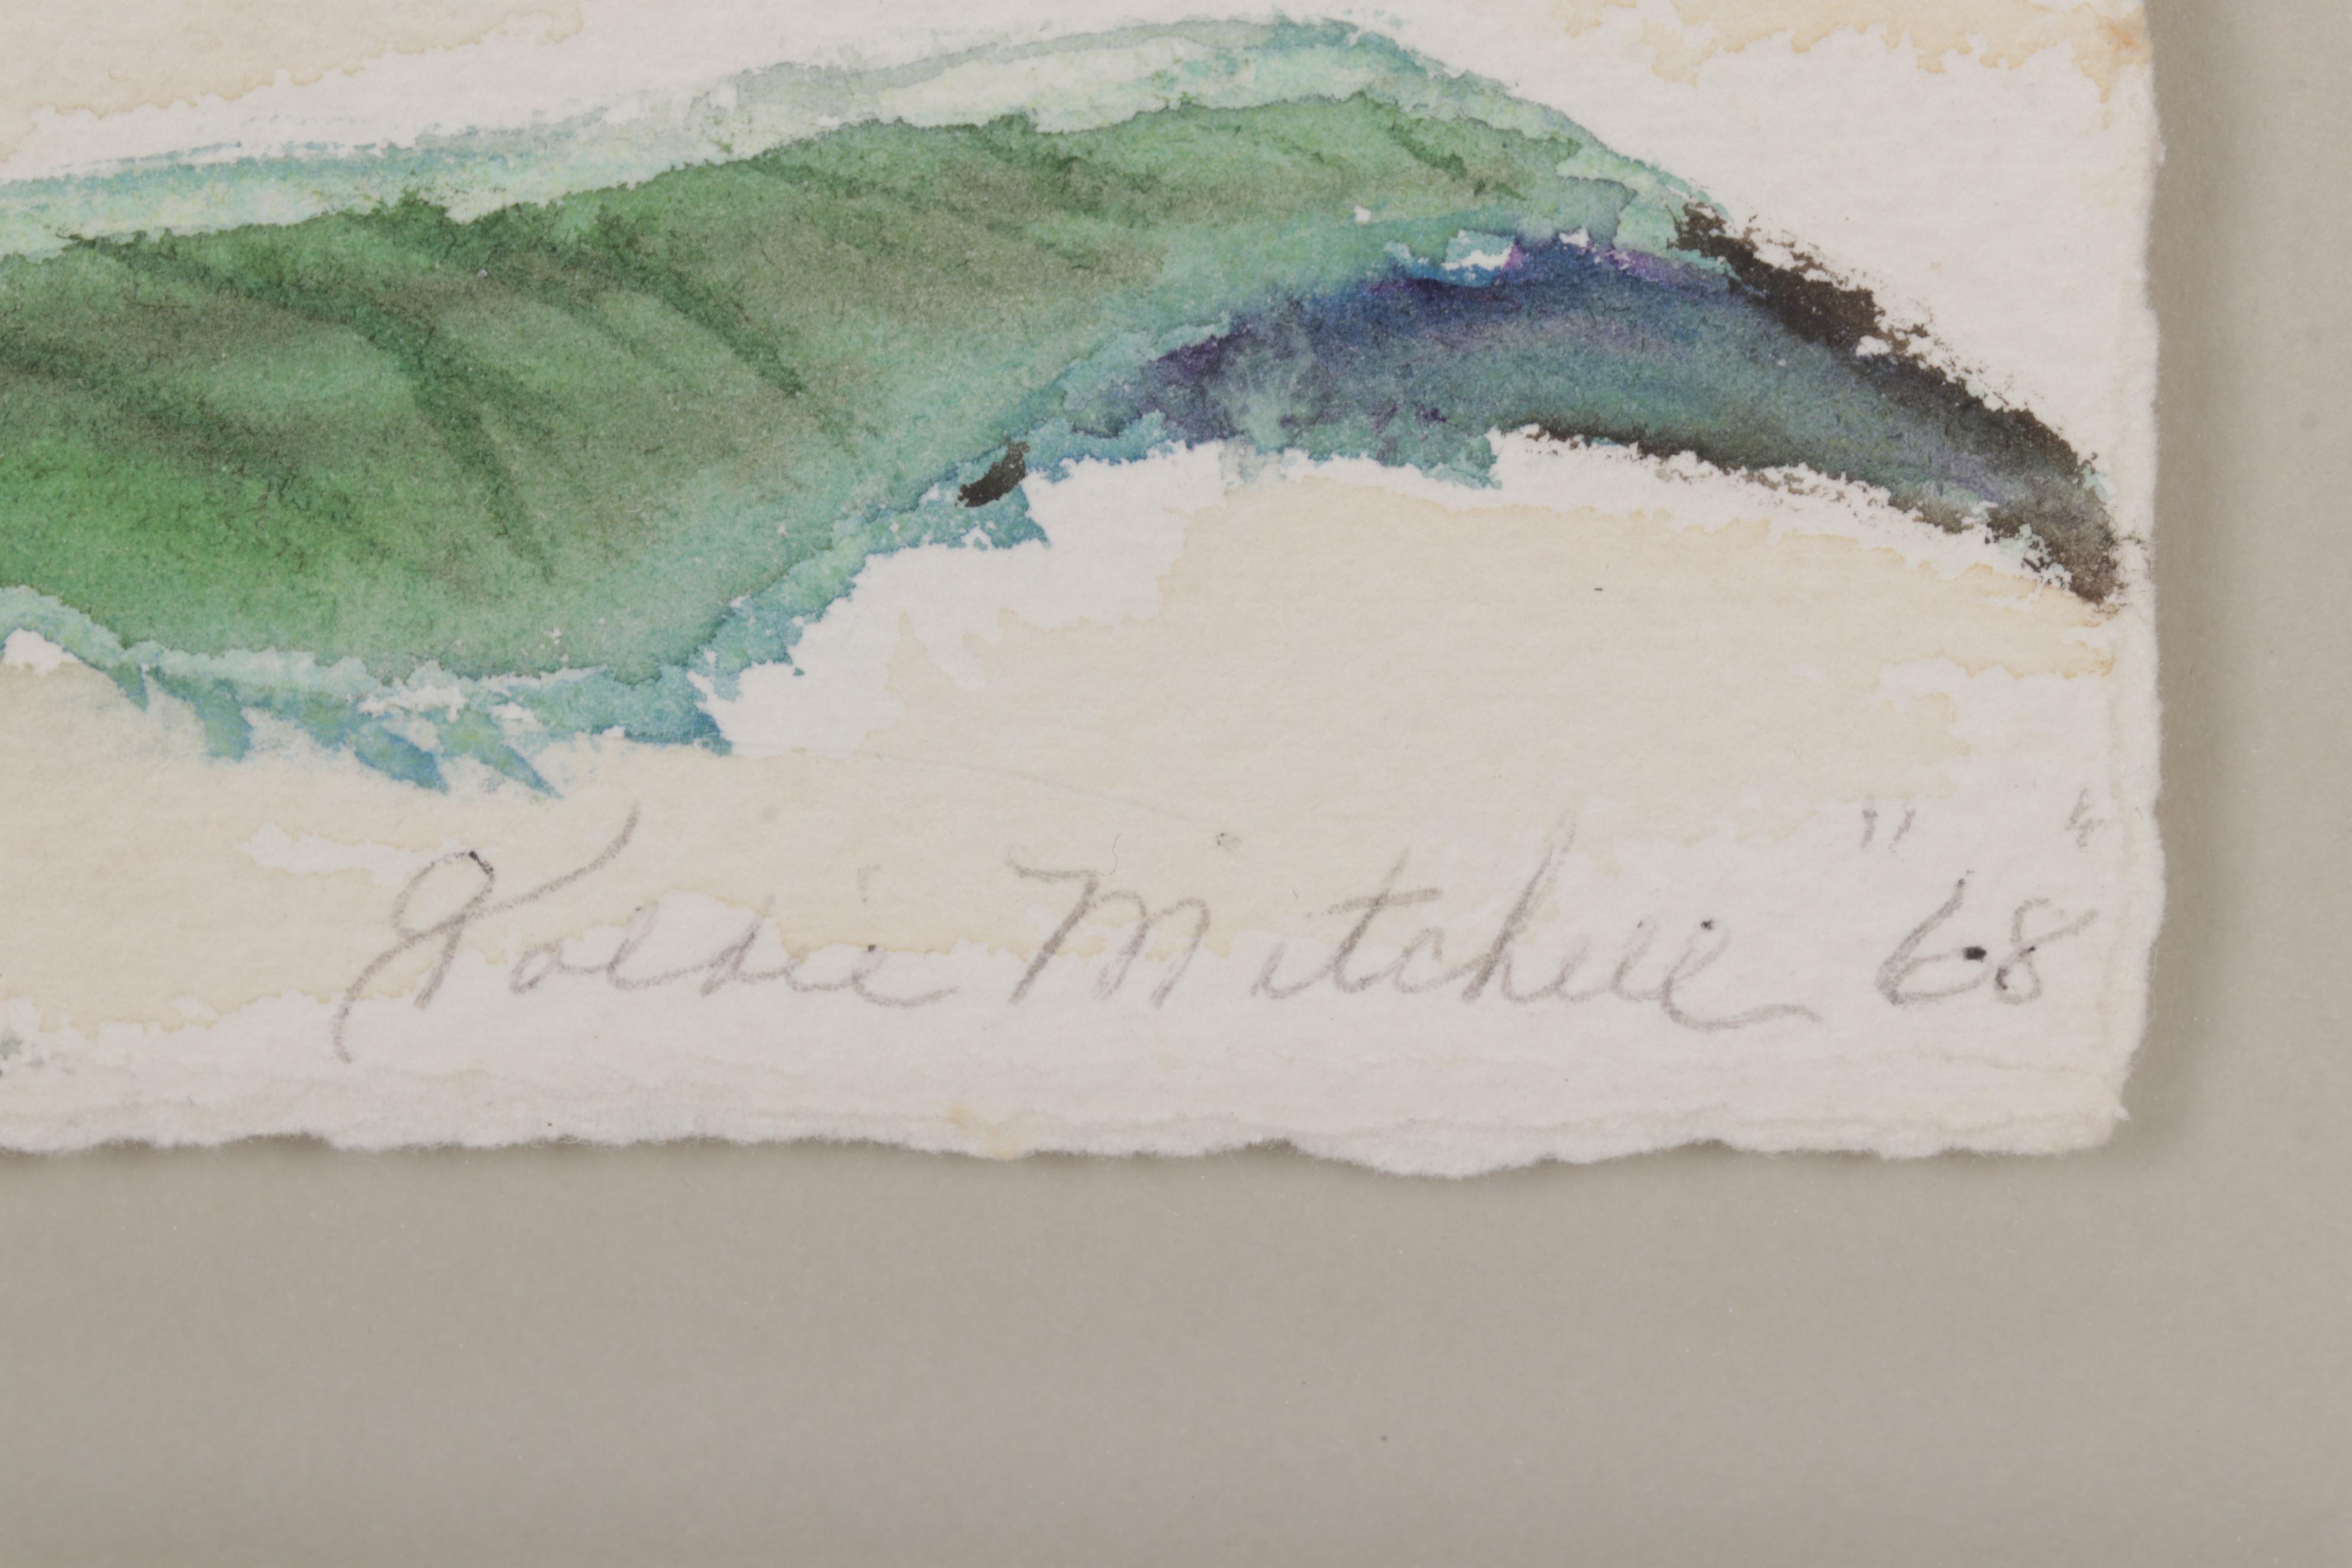 Goldie Mitchell "68"